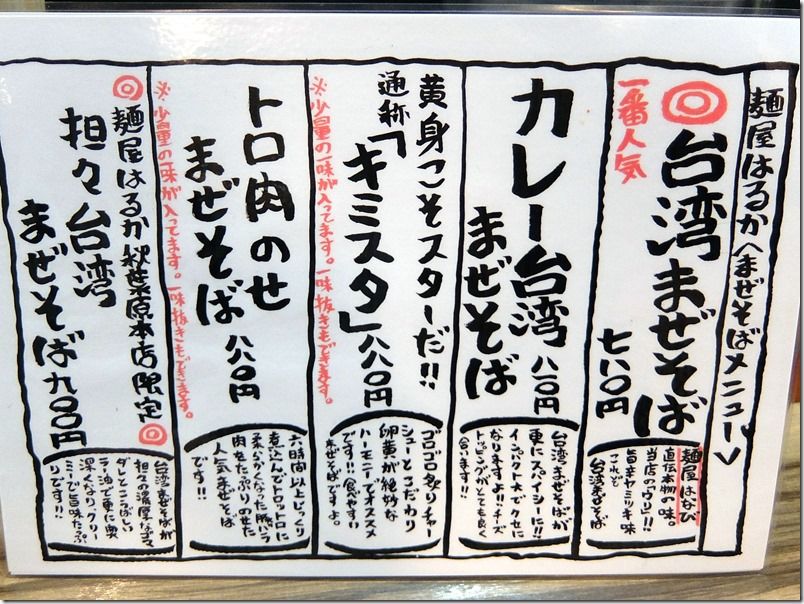 麺屋はるか〈まぜそばメニュー〉
◎一番人気
台湾まぜそば
七八〇円
麺屋はなび
直伝本物の味。
当店の「ウリ」!!
旨辛ヤミツキ味
これぞ
台湾まぜそば
カレー台湾
まぜそば
八八〇円
台湾まぜそばが
更にスパイシーに!!
インパクト大でクセに
なりますよ♪チーズ
トッピングがとても良く
合います!!
黄身こそスターだ!!
通称「キミスタ」八八〇円
※少量の一味が入ってます。一味抜きもできます。
ゴロゴロ炙りチャー
シューとこだわり
卵黄が絶妙な
ハーモニーでオススメ
です!!食べやすい
まぜそばですよ。
トロ肉のせ
まぜそば
八八〇円
※少量の一味が入ってます。一味抜きもできます。
六時間以上じっくり
煮込んでトロットロに
柔らかくなった豚バラ
肉をたっぷりのせた
人気まぜそば
です!!
◎麺屋はるか秋葉原本店限定◎
担々台湾
まぜそば九〇〇円
台湾まぜそばが
担々の濃厚なゴマ
ダレとこうばしい
ラー油で更に奥
深くなり、クリー
ミーで旨味たっぷ
りです!!